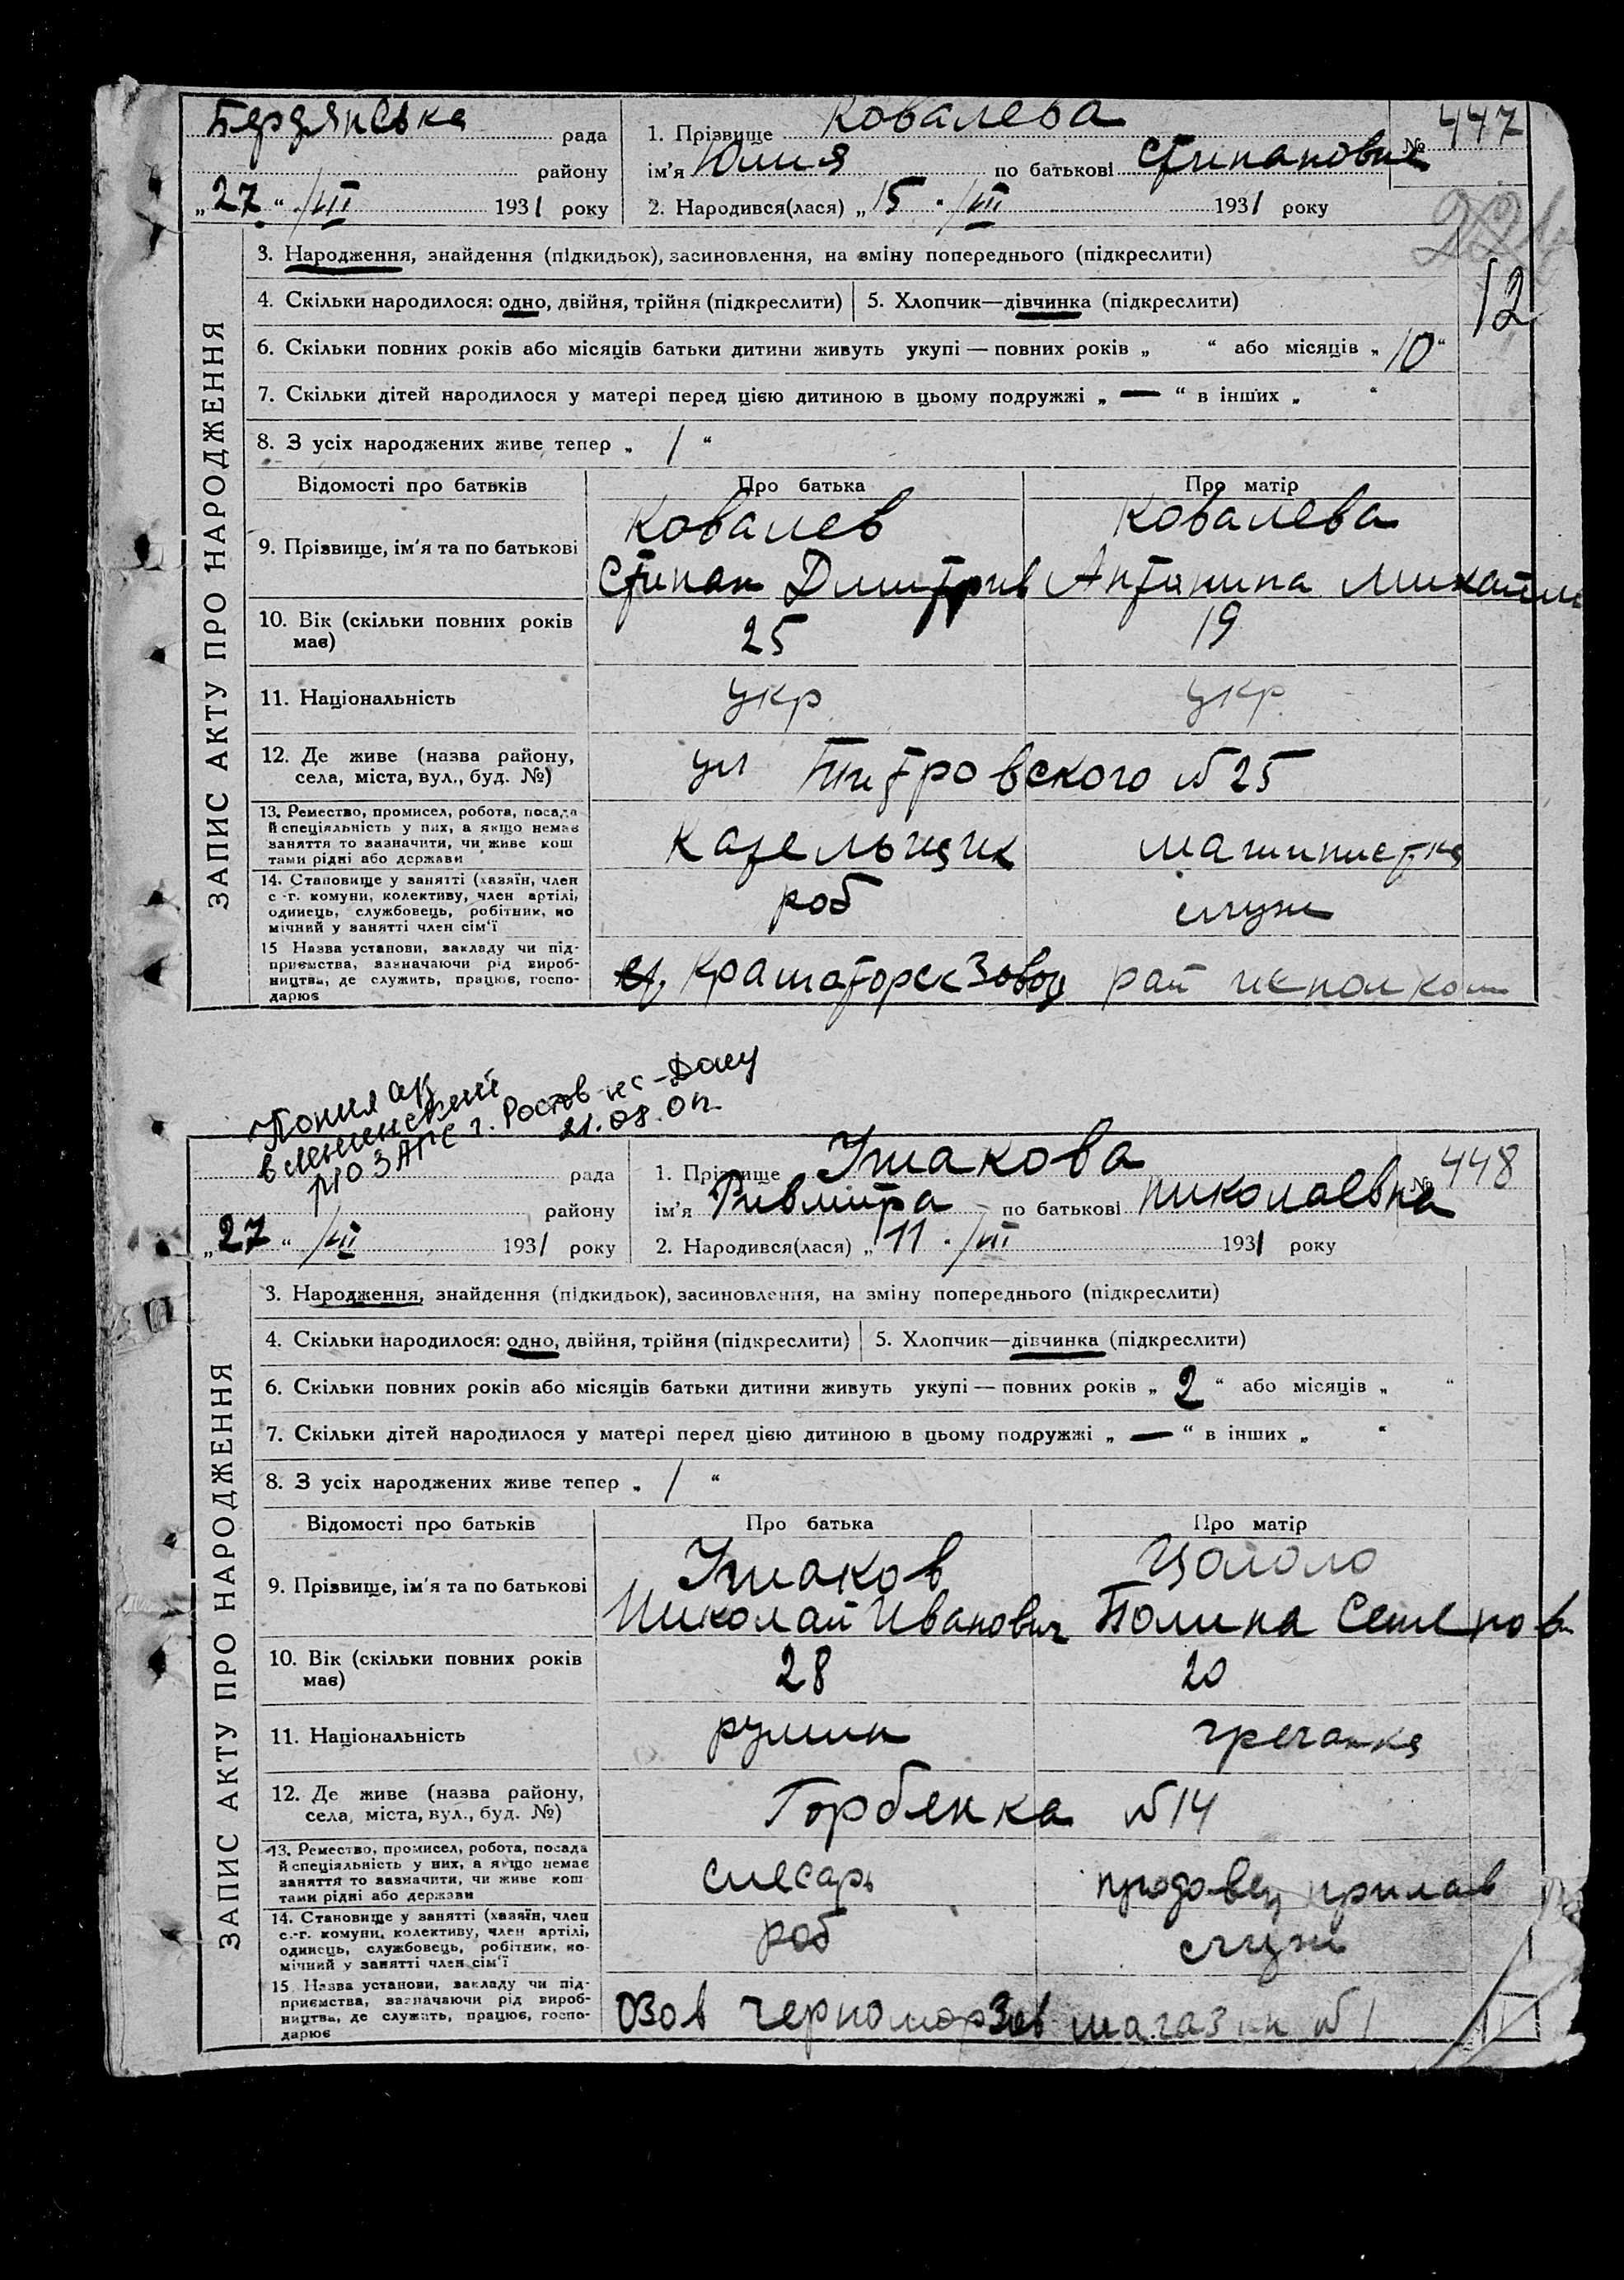 Бердянська рада
1. Прізвище Ковалева
№ 447
району
ім'я Юлия по батькові Степановна
„27“ /VII 1931 року
2. Народився(лася) „15“ /VII 1931 року
12
ЗАПИС АКТУ ПРО НАРОДЖЕННЯ
3. Народження, знайдення (підкидьок), засиновлення, на зміну попереднього (підкреслити)
4. Скільки народилося: одно, двійня, трійня (підкреслити)
5. Хлопчик—дівчинка (підкреслити)
6. Скільки повних років або місяців батьки дитини живуть укупі — повних років „ “ або місяців „10“
7. Скільки дітей народилося у матері перед цією дитиною в цьому подружжі „—“ в інших „ “
8. З усіх народжених живе тепер „1“
Відомості про батьків
Про батька
Про матір
9. Прізвище, ім'я та по батькові
Ковалев
Степан Дмитрив
Ковалева
Антонина Михайл
10. Вік (скільки повних років
має)
25
19
11. Національність
укр
укр
12. Де живе (назва району,
села, міста, вул., буд. №)
ул Петровского №25
13. Ремество, промисел, робота, посада
й спеціяльність у них, а якщо немає
заняття то зазначити, чи живе кош
тами рідні або держави
Карельщик
машинистка
14. Становище у занятті (хазяїн, член
с.-г. комуни, колективу, член артілі,
одинець, службовець, робітник, по
мічний у занятті член сім'ї
роб
служ
15 Назва установи, закладу чи під-
приємства, зазначаючи рід вироб-
ництва, де служить, працює, госпо-
дарює
Краматорск Завод
рай исполком
Копия а/з
в Ленинский
р/о ЗАГС г. Ростов-на-Дону
21.08.0
рада
1. Прізвище Ушакова
№ 448
району
ім'я Ревмира по батькові Николаевна
„27“ /VII 1931 року
2. Народився(лася) „11“ /VII 1931 року
ЗАПИС АКТУ ПРО НАРОДЖЕННЯ
3. Народження, знайдення (підкидьок), засиновлення, на зміну попереднього (підкреслити)
4. Скільки народилося: одно, двійня, трійня (підкреслити)
5. Хлопчик—дівчинка (підкреслити)
6. Скільки повних років або місяців батьки дитини живуть укупі — повних років „2“ або місяців „ “
7. Скільки дітей народилося у матері перед цією дитиною в цьому подружжі „—“ в інших „ “
8. З усіх народжених живе тепер „1“
Відомості про батьків
Про батька
Про матір
9. Прізвище, ім'я та по батькові
Ушаков
Николай Иванович
Цололо
Полина Семенов
10. Вік (скільки повних років
має)
28
20
11. Національність
румин
гречанка
12. Де живе (назва району,
села, міста, вул., буд. №)
Горбенка №14
13. Ремество, промисел, робота, посада
й спеціяльність у них, а якщо немає
заняття то зазначити, чи живе кош
тами рідні або держави
слесарь
продавец прилав
14. Становище у занятті (хазяїн, член
с.-г. комуни, колективу, член артілі,
одинець, службовець, робітник, по-
мічний у занятті член сім'ї
роб
служ
15 Назва установи, закладу чи під-
приємства, зазначаючи рід вироб-
ництва, де служить, працює, госпо-
дарює
Озов черномор Зов
магазин №1